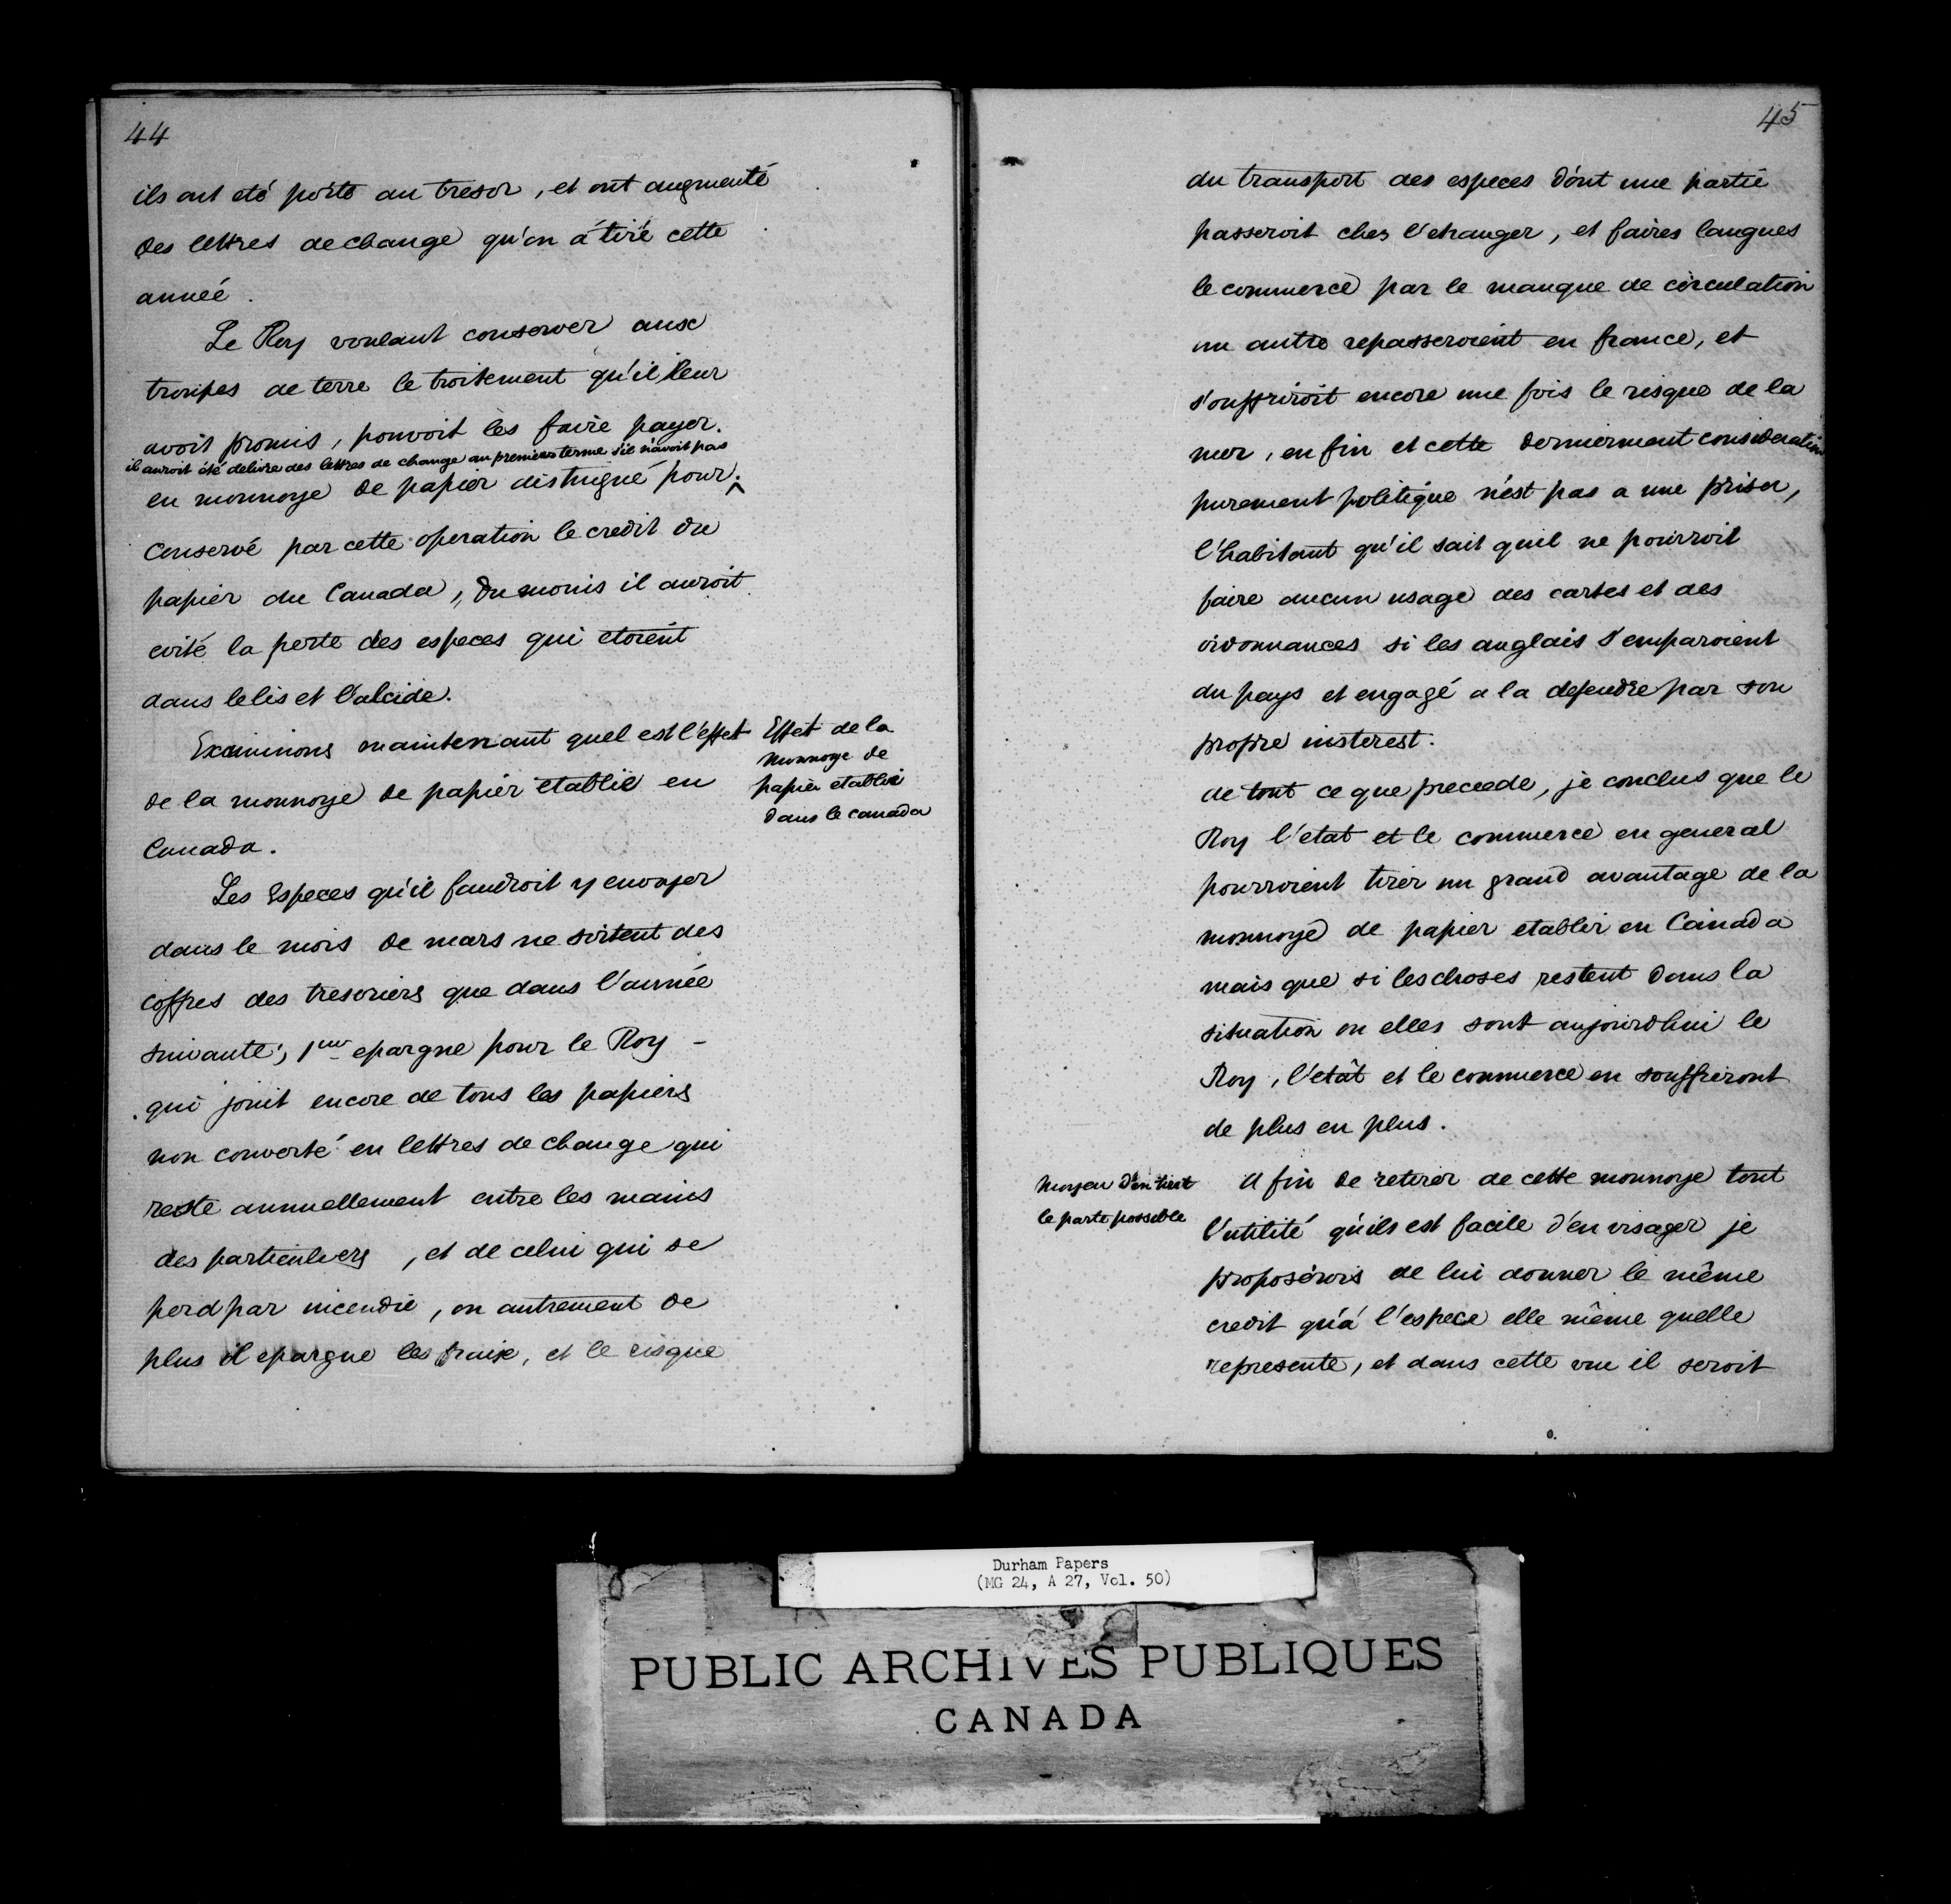 44
ils ont eté porté au tresor, et ont augmenté
des lettres de change qu'on á tiré cette
année.
Le Roy voulant conserver aux
troupes de terre le traitement qu'il leur
avoit promis, pouvoit les faire payer.
il auroit été delivré des lettres de change au premiers terme s'il n'avoit pas
en monnoye de papier distingué pour.^
Conservé par cette operation le credit du
papier du Canada, du moins il auroit
evité la perte des especes qui etoient
dans le lis et l'alcide.
Examinons maintenant quel est l'effet
de la monnoye de papier etablie en
Canada.
Effet de la
Monnoye de
papier etablie
dans le canada
Les Especes qu'il faudroit y envoyer
dans le mois de mars ne sortent des
coffres des tresoriers que dans l'année
suivante, 1ere epargne pour le Roy -
qui jouit encore de tous les papiers
non converté en lettres de change qui
reste annuellement entre les mains
des particuliers, et de celui qui se
perd par incendie, ou autrement de
plus il epargne les fraix, et le risque
45
du transport des especes dònt une partie
passeroit ches l'etranger, et faires langues
le commerce par le manque de circulation
un autre repasseroient en france, et
s'ouffriroit encore une fois le risque de la
mer, en fin et cette derniermant consideration
purement politique n'est pas a une priser,
l'habitant qu'il sait quil ne pourroit
faire aucun usage des cartes et des
ordonnances si les anglais s'emparoient
du pays et engagé a la defendre par son
propre insterest.
de tout ce que precede, je conclus que le
Roy l'etat et le commerce en general
pourroient tirer un grand avantage de la
monnoye de papier etablir en Canada
mais que si les choses restent dans la
situation ou elles sont aujourdhui le
Roy, l'etât et le commerce en souffriront
de plus en plus.
Moyen d'en tirer
le parte possible
A fin de retirer de cette monnoye tout
l'utilité qu'ils est facile d'en visager je
proposérois de lui donner le même
credit qu'á l'espece elle même quelle
represente, et dans cette vue il seroit
Durham Papers
(MG 24, A 27, Vol. 50)
PUBLIC ARCHIVES PUBLIQUES
CANADA